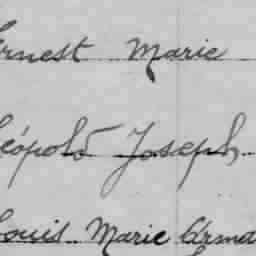 Ernest Marie
Léopold Joseph
Louis Marie Arma